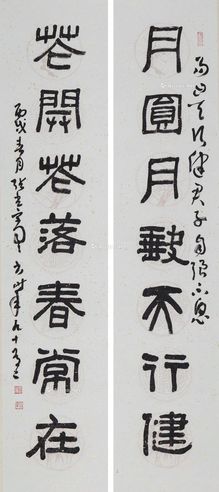 易曰天行健君子自强不息
月圓月缺天行健
花開花落春常在
丙戌春月張光賓書時年九十有二